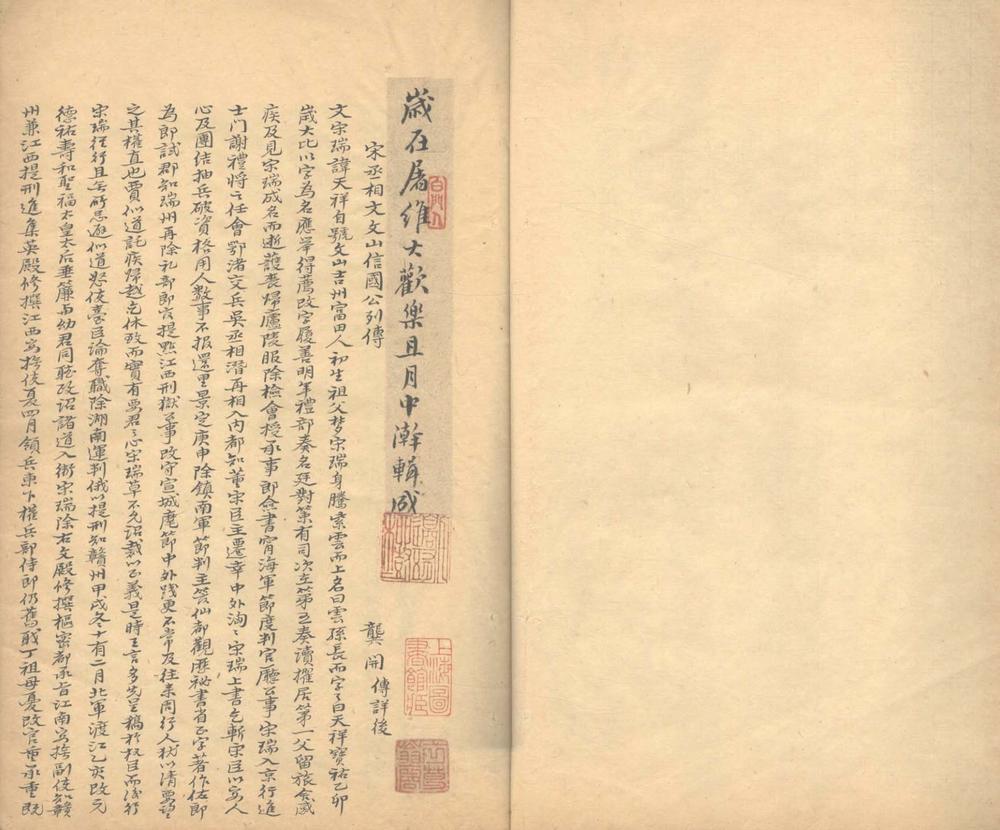 歲在屠維大歡樂且月中澣輯成
宋丞相文文山信國公列傳
龔開 傳詳後
文宋瑞諱天祥自號文山吉州富田人初生祖父夢宋瑞身騰紫雲而上名曰雲孫長而字之曰天祥寶祐乙卯
歲大比以字為名應舉得薦改字履善明年禮部奏名廷對策有司次在第五奏讀擢居第一父留旅舍感
疾及見宋瑞成名而逝護喪歸廬陵服除檢會授承事郎僉書寧海軍節度判官廳公事宋瑞入京行進
士門謝禮將之任會鄂渚交兵吳丞相潛再相入內都知董宋臣主遷幸中外洶〻宋瑞上書乞斬宋臣以安人
心及團結抽兵破資格用人數事不報還里景定庚申除鎮南軍節判主管仙都觀歷秘書省正字著作佐郎
為郎試郡知瑞州再除礼部郎官提點江西刑獄公事改守宣城麾節中外踐更不常及往来周行人猶以清要望
之其權直也賈似道託疾歸越乞休致而實有要君之心宋瑞草不允詔裁以正義是時王言多先呈稿於权臣而後行
宋瑞徑行且无所忌遜似道怒使臺臣論奪職除湖南運判俄以提刑知贛州甲戌冬十有二月北軍渡江乙亥改元
德祐壽和聖福太皇太后垂簾与幼君同聽政詔諸道入衛宋瑞除右文殿修撰樞密都承旨江南安撫副使知贛
州兼江西提刑進集英殿修撰江西安撫使夏四月領兵東下權兵部侍郎仍舊職丁祖母憂改官重承重既
上海圖書館藏